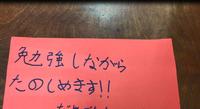 勉強しながら
たのしめます!!